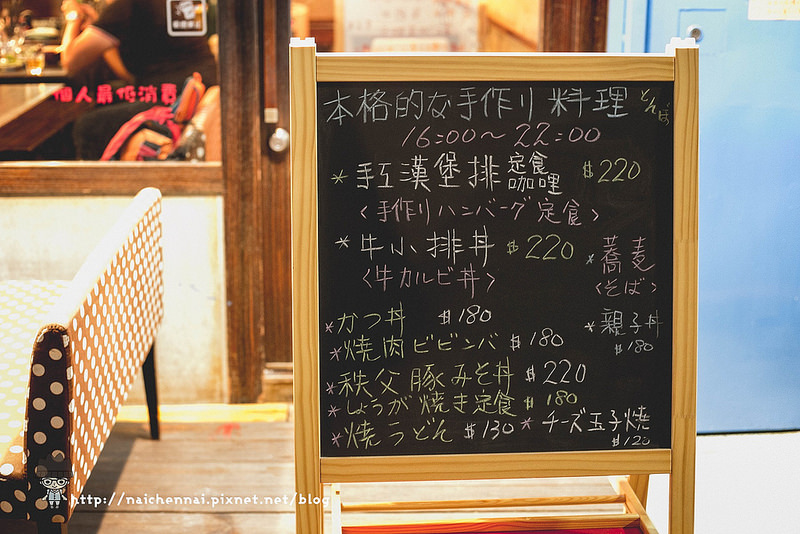 個人最低消費
本格的な手作り料理 とんぼ
16:00～22:00
*手工漢堡排定食咖哩 $220
<手作りハンバーグ定食>
*牛小排丼 $220
<牛カルビ丼>
*蕎麦
<そば>
*かつ丼 $180
*親子丼
$180
*焼肉ビビンバ $180
*秩父豚みそ丼 $220
*しょうが焼き定食 $180
*焼うどん $130
*チーズ玉子焼
$120
http://naichennai.pixnet.net/blog